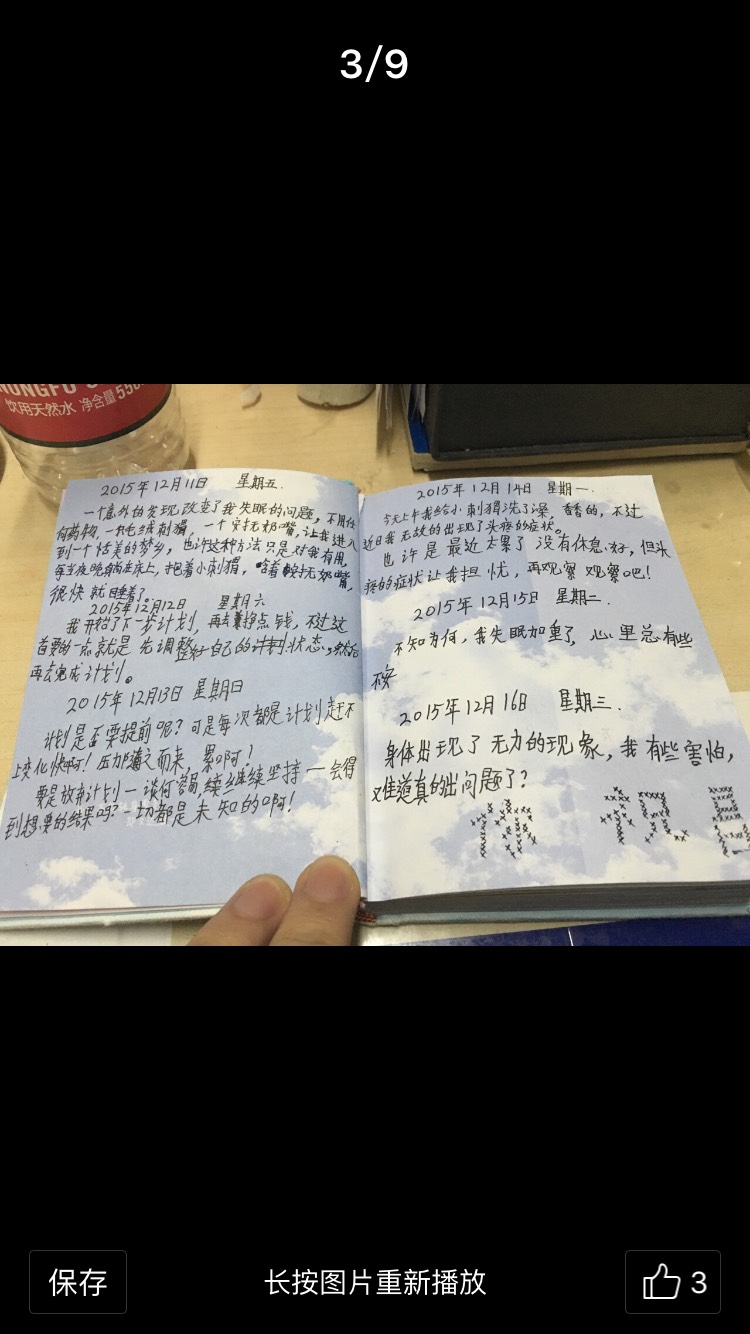 3/9
NONGFU S
饮用天然水 净含量550
2015年12月11日 星期五.
一个意外的发现改变了我失眠的问题，不用任
何药物，一只毛绒刺猬，一个安抚奶嘴，让我进入
到一个恬美的梦乡，也许这种方法只是对我有用，
每当夜晚躺在床上，抱着小刺猬，啥着安抚奶嘴，
很快就睡着了。
2015年12月12日 星期六
我开始了下一步计划，再去挣点钱，不过这
首要的一点就是先调整好自己的状态，然后
再去完成计划。
2015年12月13日 星期日
计划是否要提前呢？可是每次都是计划赶不
上变化快啊！压力随之而来，累啊！
要是放弃计划一谈何容易，继续坚持一会得
到想要的结果吗？一切都是未知的啊！
2015年12月14日 星期一.
今天上午我给小刺猬洗了澡，香香的，不过
近日我无故的出现了头疼的症状。
也许是最近太累了没有休息好，但头
疼的症状让我担忧，再观察观察吧！
2015年12月15日 星期二.
不知为何，我失眠加重了，心里总有些
不安
2015年12月16日 星期三.
身体出现了无力的现象，我有些害怕，
难道真的出问题了？
保存
长按图片重新播放
3